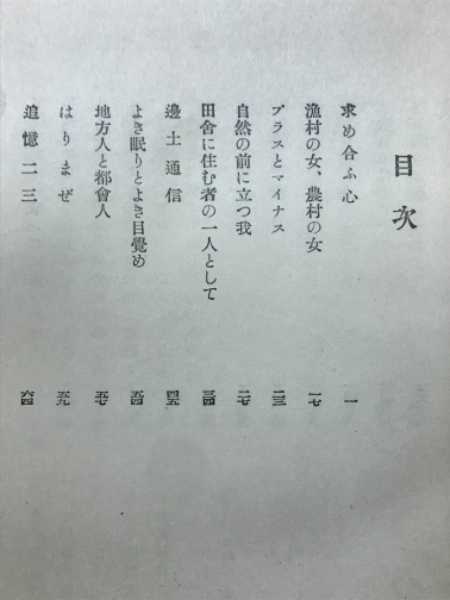 目次
求め合ふ心 一
漁村の女、農村の女 一七
プラスとマイナス 二三
自然の前に立つ我 二七
田舎に住む者の一人として 三四
邊土通信 四五
よき眠りとよき目覺め 五四
地方人と都會人 五七
はりまぜ 五九
追憶二三 六四